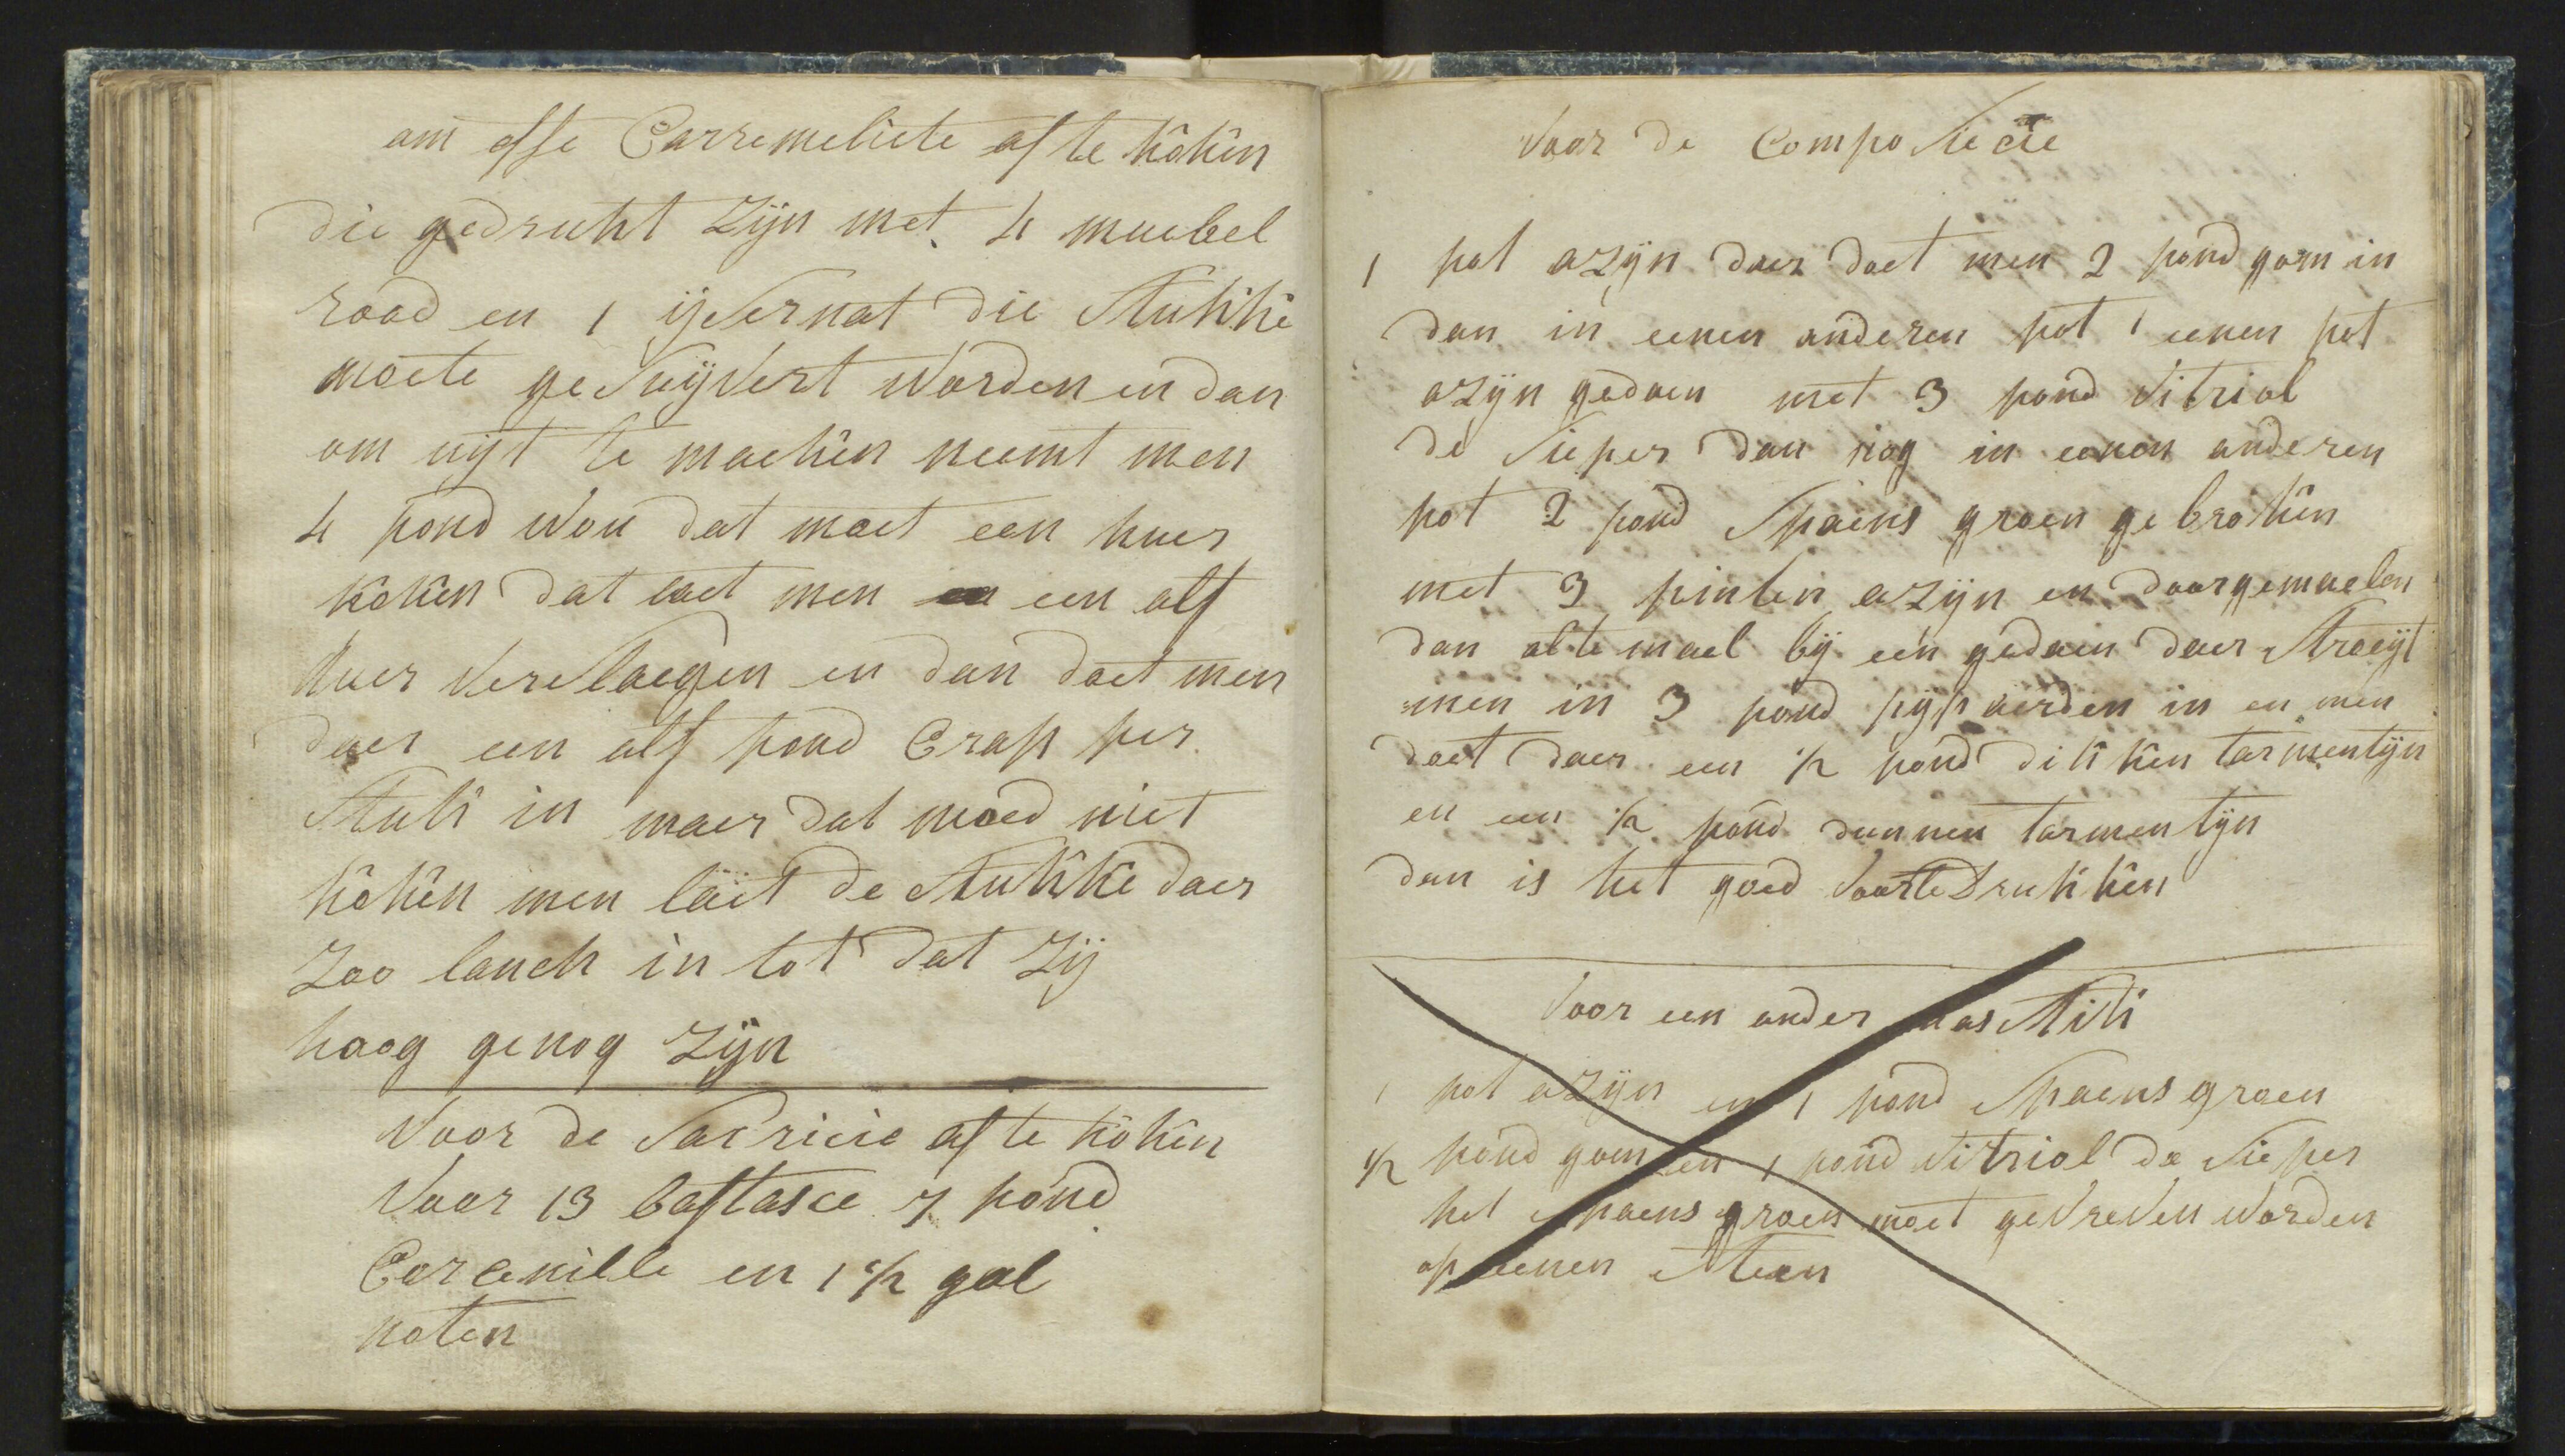 om offe Carremeliete af te koken
die gedrukt zijn met 4 muebel
rood en 1 ijsernat die stukke
moete gesuijvert worden en dan
om uijt te maeken neemt men
4 pond wou dat moet een huer
koken dat laet men een alf
huer verslaegen en dan doet men
daer een alf pond Crap per
stuk in maer dat moed niet
koken men läit de stukke daer
zoo lanch in tot dat zij
hoog genog zijn
Voor de af te koken
Voor 13 7 pond
Corcenille en 1 ½ gal
noten
Voor de Composiecie
1 pot azijn daer doet men 2 pond gom in
dan in eenen anderen pot 1 eenen pot
azijn gedaen met 3 pond vitriol
de sieper dan nog in eenen anderen
pot 2 pond spaens groen gebroken
met 3 pinten azijn en doorgemaelen
dan altemael bij een gedaen daer stroeijt
men in 3 pond pijpaerden in en men
doet daer een ½ pond dikken tarmentijn
en een ½ pond dunnen tarmentijn
dan is het goed voor te drukken
Voor een ander mastik
1 pot azijn en 1 pond spaens groen
½ pond gom en 1 pond vitriol de sieper
het spaens groen moet gevreven worden
op eenen steen